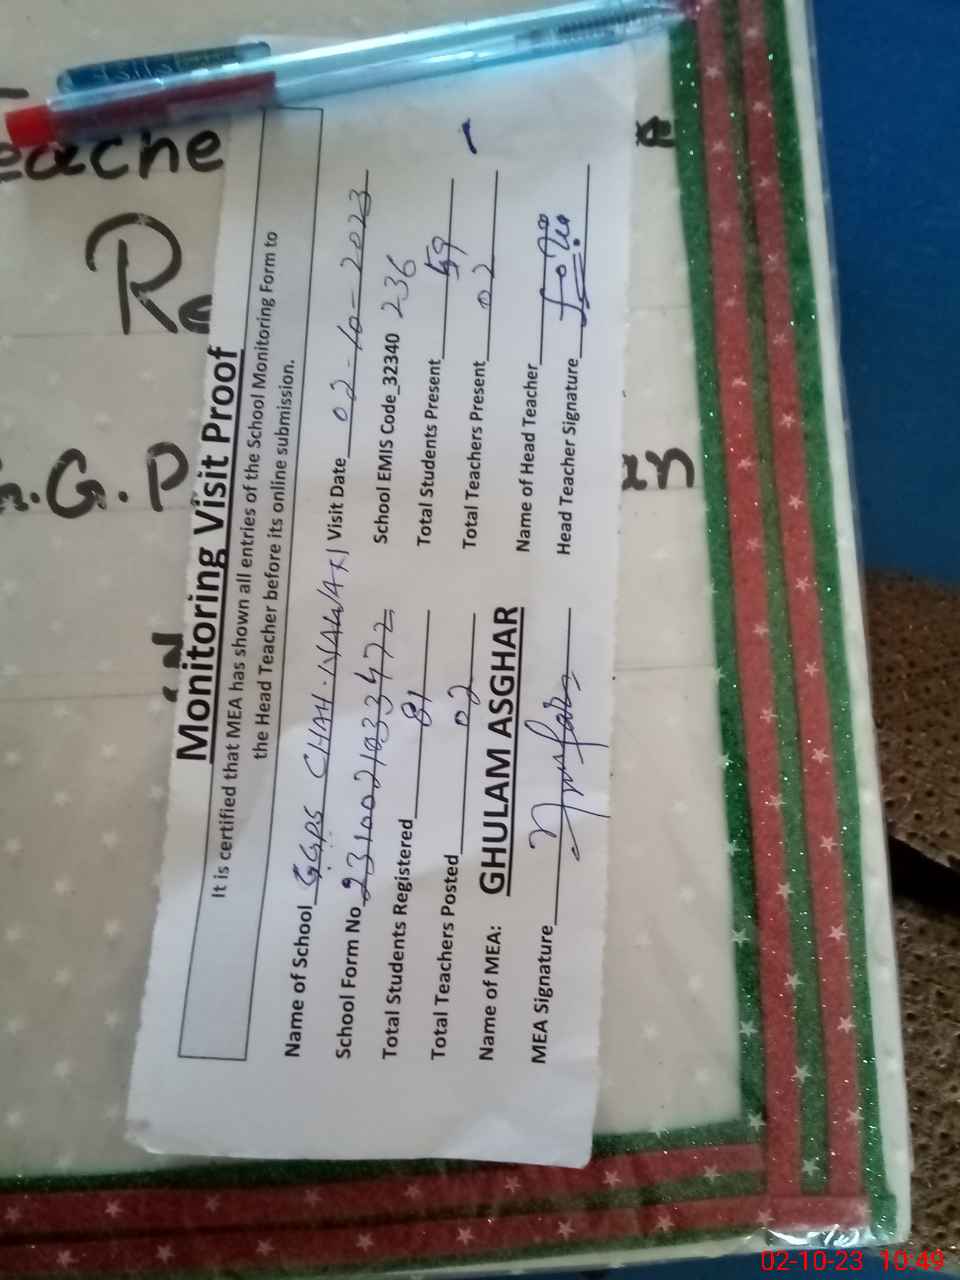 eache
Re
G.P
an
Monitoring Visit Proof
It is certified that MEA has shown all entries of the School Monitoring Form to
the Head Teacher before its online submission.
Name of School GGPS CHAH NAWAX Visit Date 02-10-2023
School Form No 2310021033472 School EMIS Code_32340 236
Total Students Registered 81 Total Students Present 59
Total Teachers Posted 02 Total Teachers Present 02
Name of MEA: GHULAM ASGHAR Name of Head Teacher
MEA Signature Head Teacher Signature
02-10-23 10:49